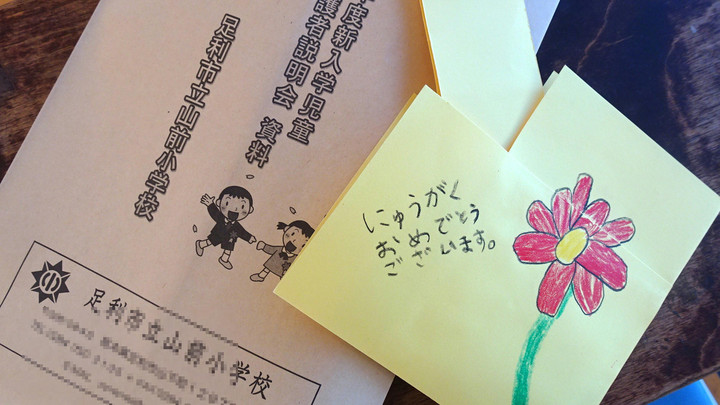 年度新入学児童
護者説明会 資料
足利市立山前小学校
足利市立山前小学校
にゅうがく
おめでとう
ございます。